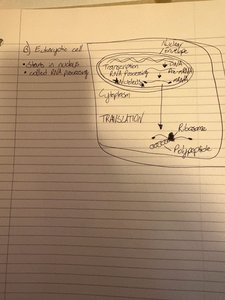 B) Eukaryotic cell
• Starts in nucleus
• called RNA processing
Nuclear
Envelope
Transcription
DNA
RNA Processing
Pre-mRNA
mRNA
Cytoplasm
TRANSLATION
Ribosome
Polypeptide